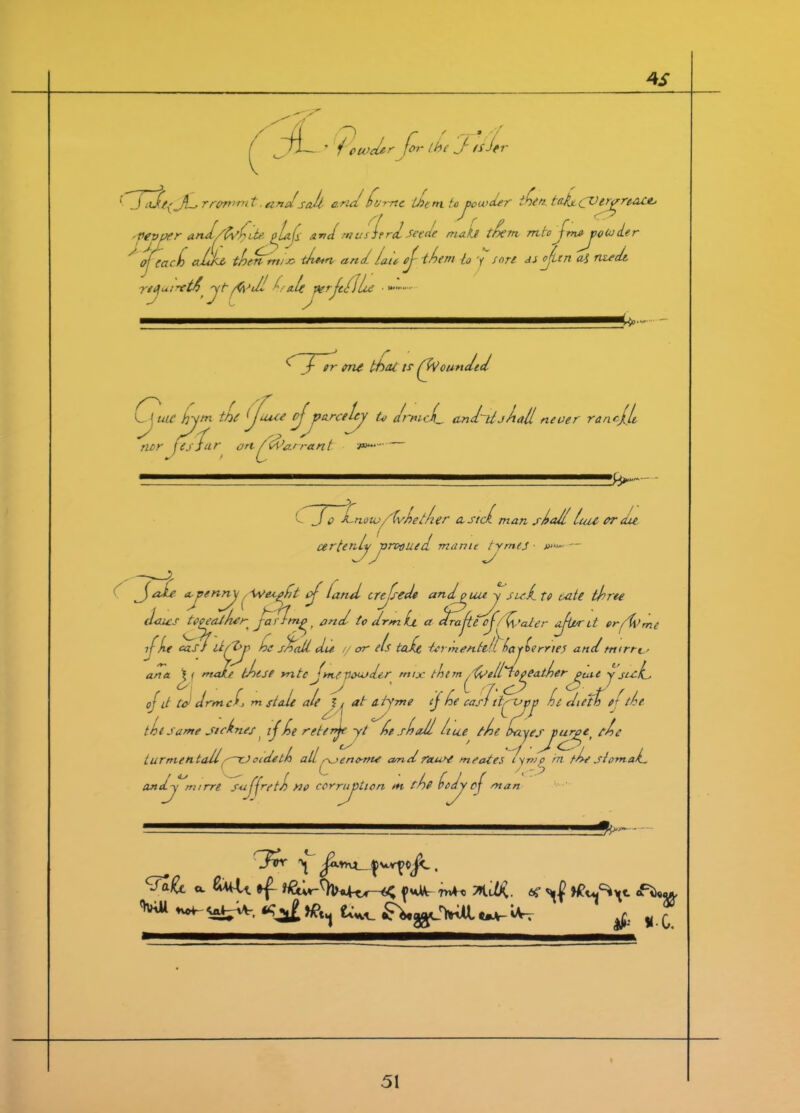 45
A Powder for the Fister
Take Arromnt. and salt and burne them to powder then take Vergreace
pepper and White glass and musterd seede make them into fine powder
of each alike then mix them and laie of them to yͤ sore as often as neede
requireth yt Will heale perfectlie
For one that is Wounded
Giue hym the Juuce of parceley to drinck and it shall neuer ranckle
nor festar on Warrant
To know Whether a sick man shall liue or die
certenly prooued manie tymes
Take a penny Weight of land cressede and giue yͤ sick to eate three
daies togeather fasting, and to drinke a drafte of Water after it or Wine
if he cast it Vp he shall die // or els take tormentell bayberries and mirre
and make these into fine powder mix them Well togeather giue yͤ sick
of it to drinck in stale ale at a tyme if he cast it Vpp he dieth of the
the same sicknes, if he reteine yt he shall liue the bayes purge, the
turmentall Voideth all venome and rawe meates lying in the stomak
and yͤ mirre suffreth no corruption in the body of man
For yͤ same purpose.
Take a little of their Water & put into Milk. & yf they dye Dogge
Will not eat it, & yf they liue Dogge Will eat it.
N.C.
51